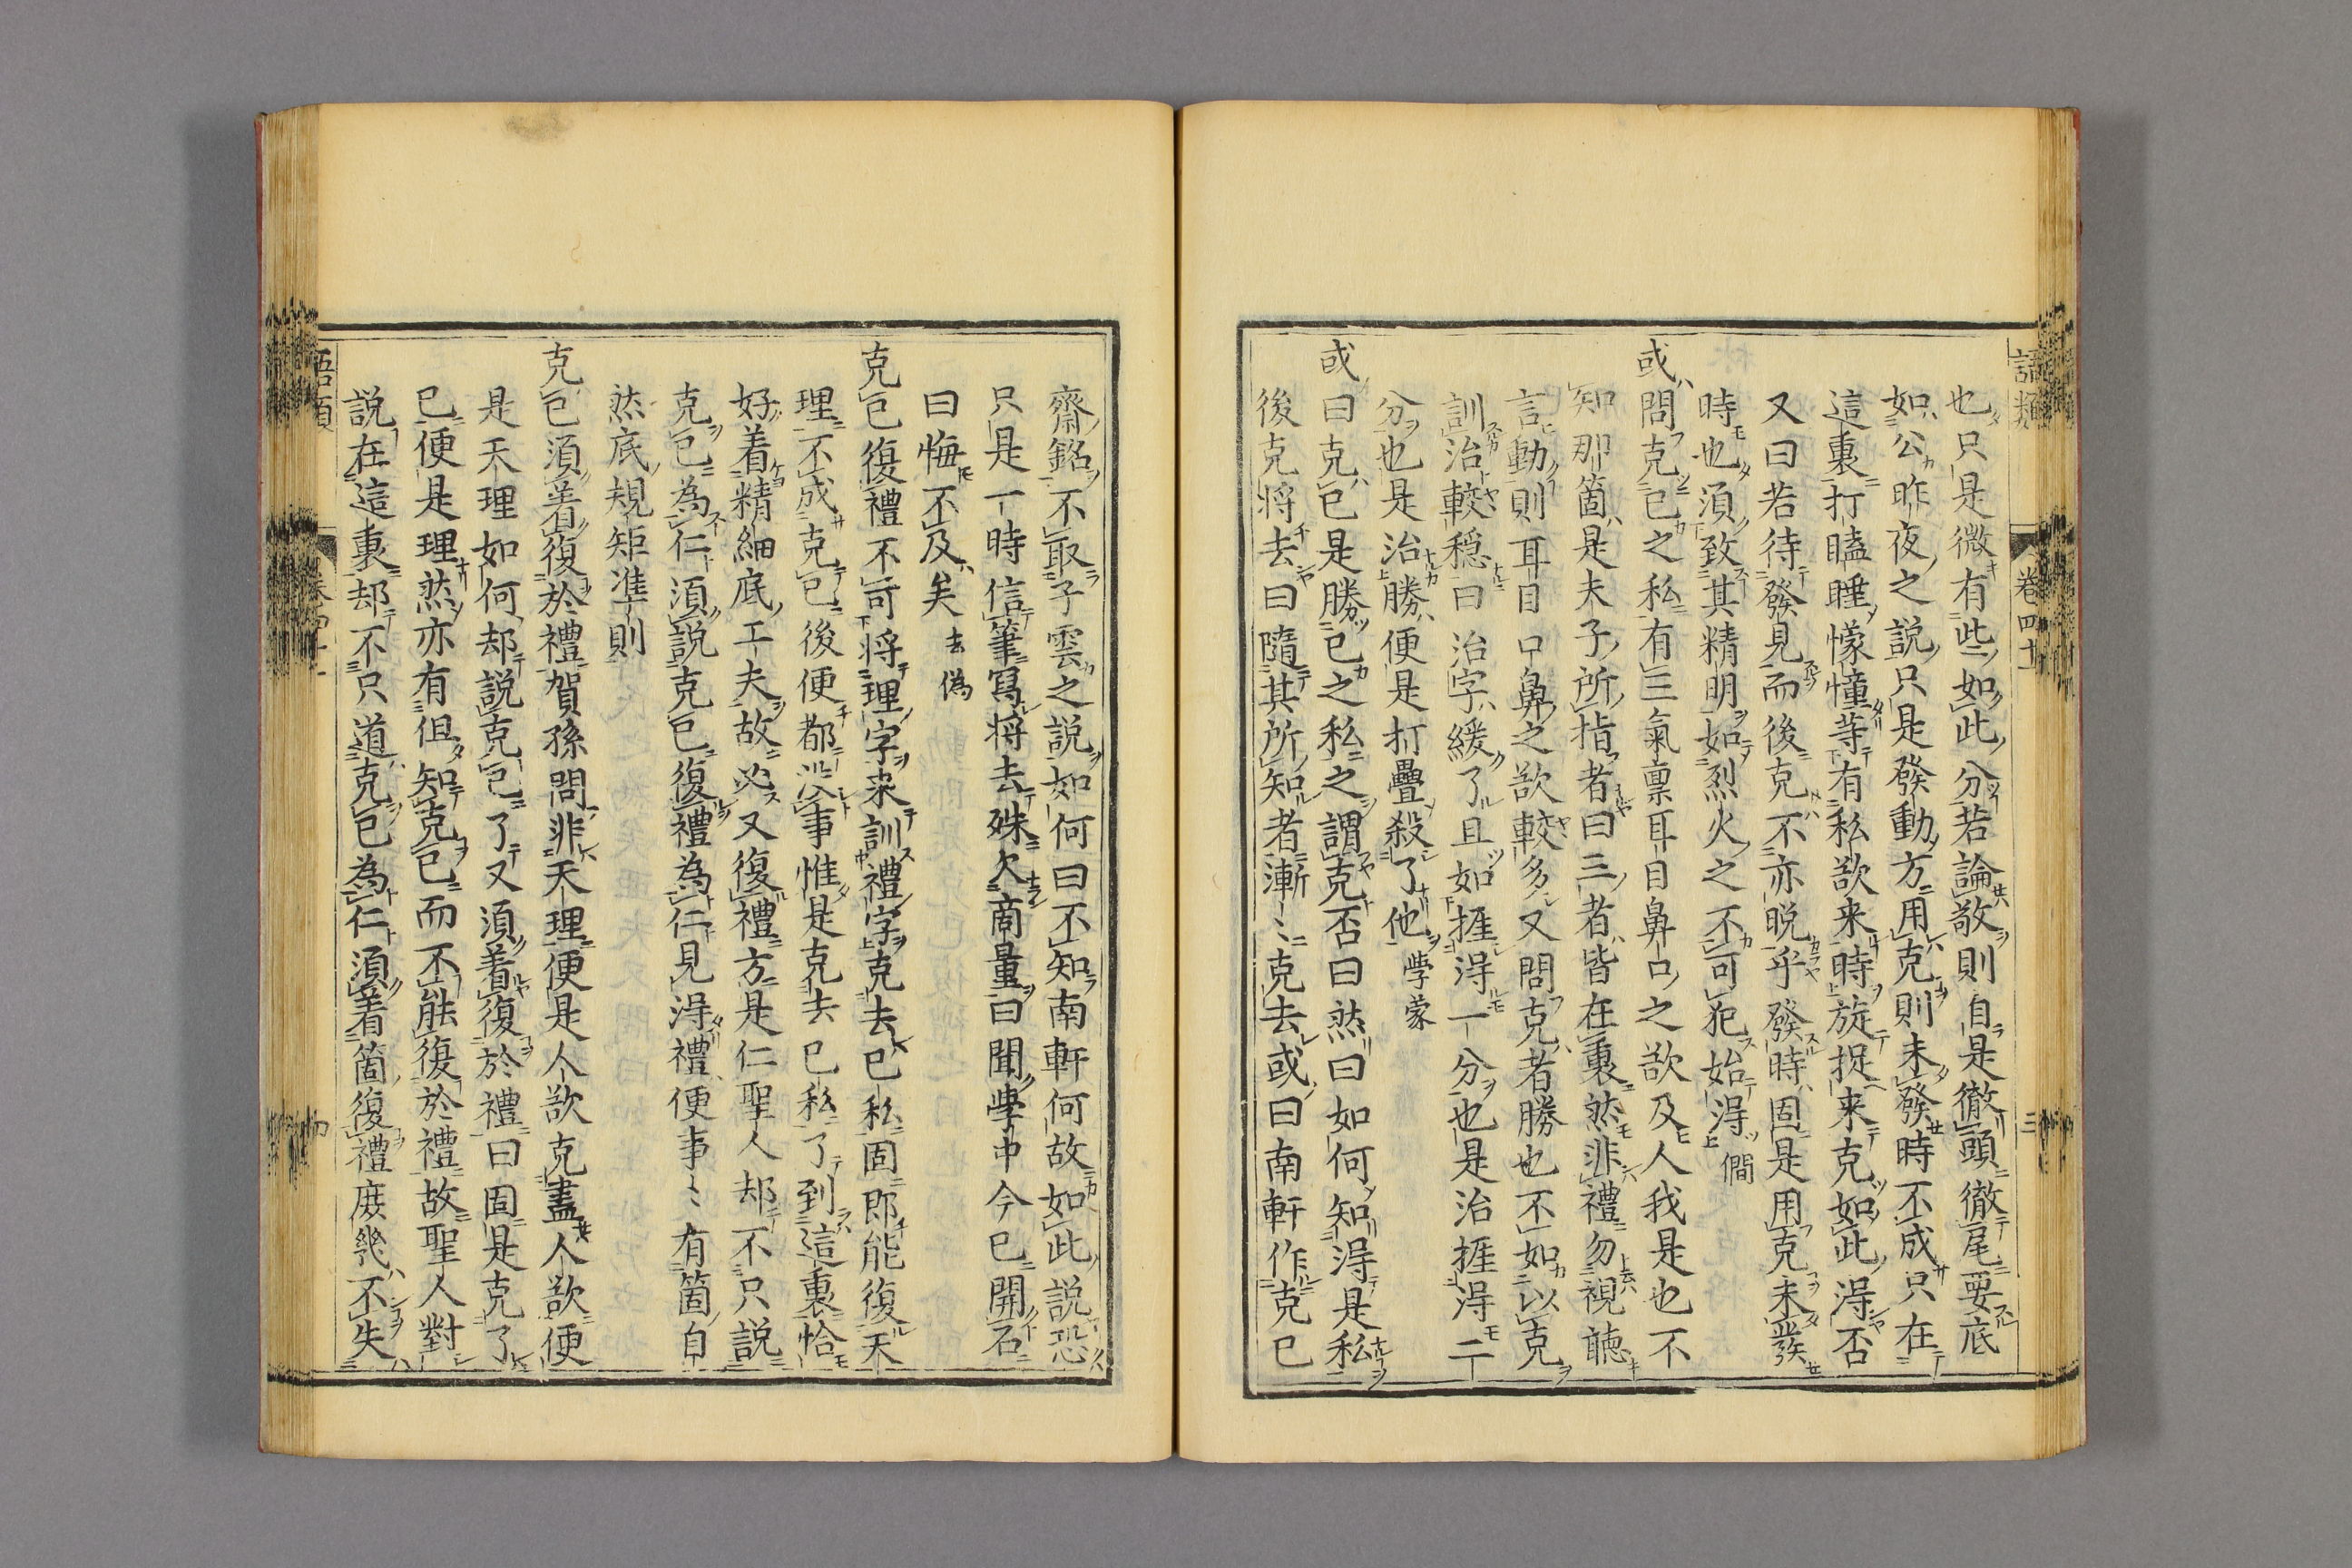 語類 卷四十一 三
也只是微有些如此分若論敬則自是徹頭徹尾要底
如公昨夜之說只是發動方用克則未發時不成只在
這裏打瞌睡懞憧等有私欲来時旋捉来克如此得否
又曰若待發見而後克不亦晩乎發時固是用克未發
時也須致其精明如烈火之不可犯始得 僩
或問克己之私有三氣稟耳目鼻口之欲及人我是也不
知那箇是夫子所指者曰三者皆在裏然非禮勿視聽
言動則耳目口鼻之欲較多又問克者勝也不如以克
訓治較穩曰治字緩了且如捱得一分也是治捱得二
分也是治勝便是打疊殺了他 學蒙
或曰克己是勝己之私之謂克否曰然曰如何知得是私
後克將去曰隨其所知者漸〻克去或曰南軒作克己
齋銘不取子雲之說如何曰不知南軒何故如此說恐
只是一時信筆寫將去殊欠商量曰聞學中今已開石
曰悔不及矣 去偽
克己復禮不可將理字来訓禮字克去己私固即能復天
理不成克己後便都沒事惟是克去己私了到這裏恰
好着精細底工夫故必又復禮方是仁聖人却不只說
克己為仁須說克己復禮為仁見得禮便事〻有箇自
然底規矩準則
克己須着復於禮賀孫問非天理便是人欲克盡人欲便
是天理如何却說克己了又須着復於禮曰固是克了
己便是理然亦有但知克己而不能復於禮故聖人對
說在這裏却不只道克己為仁須着箇復禮庶幾不失
語類